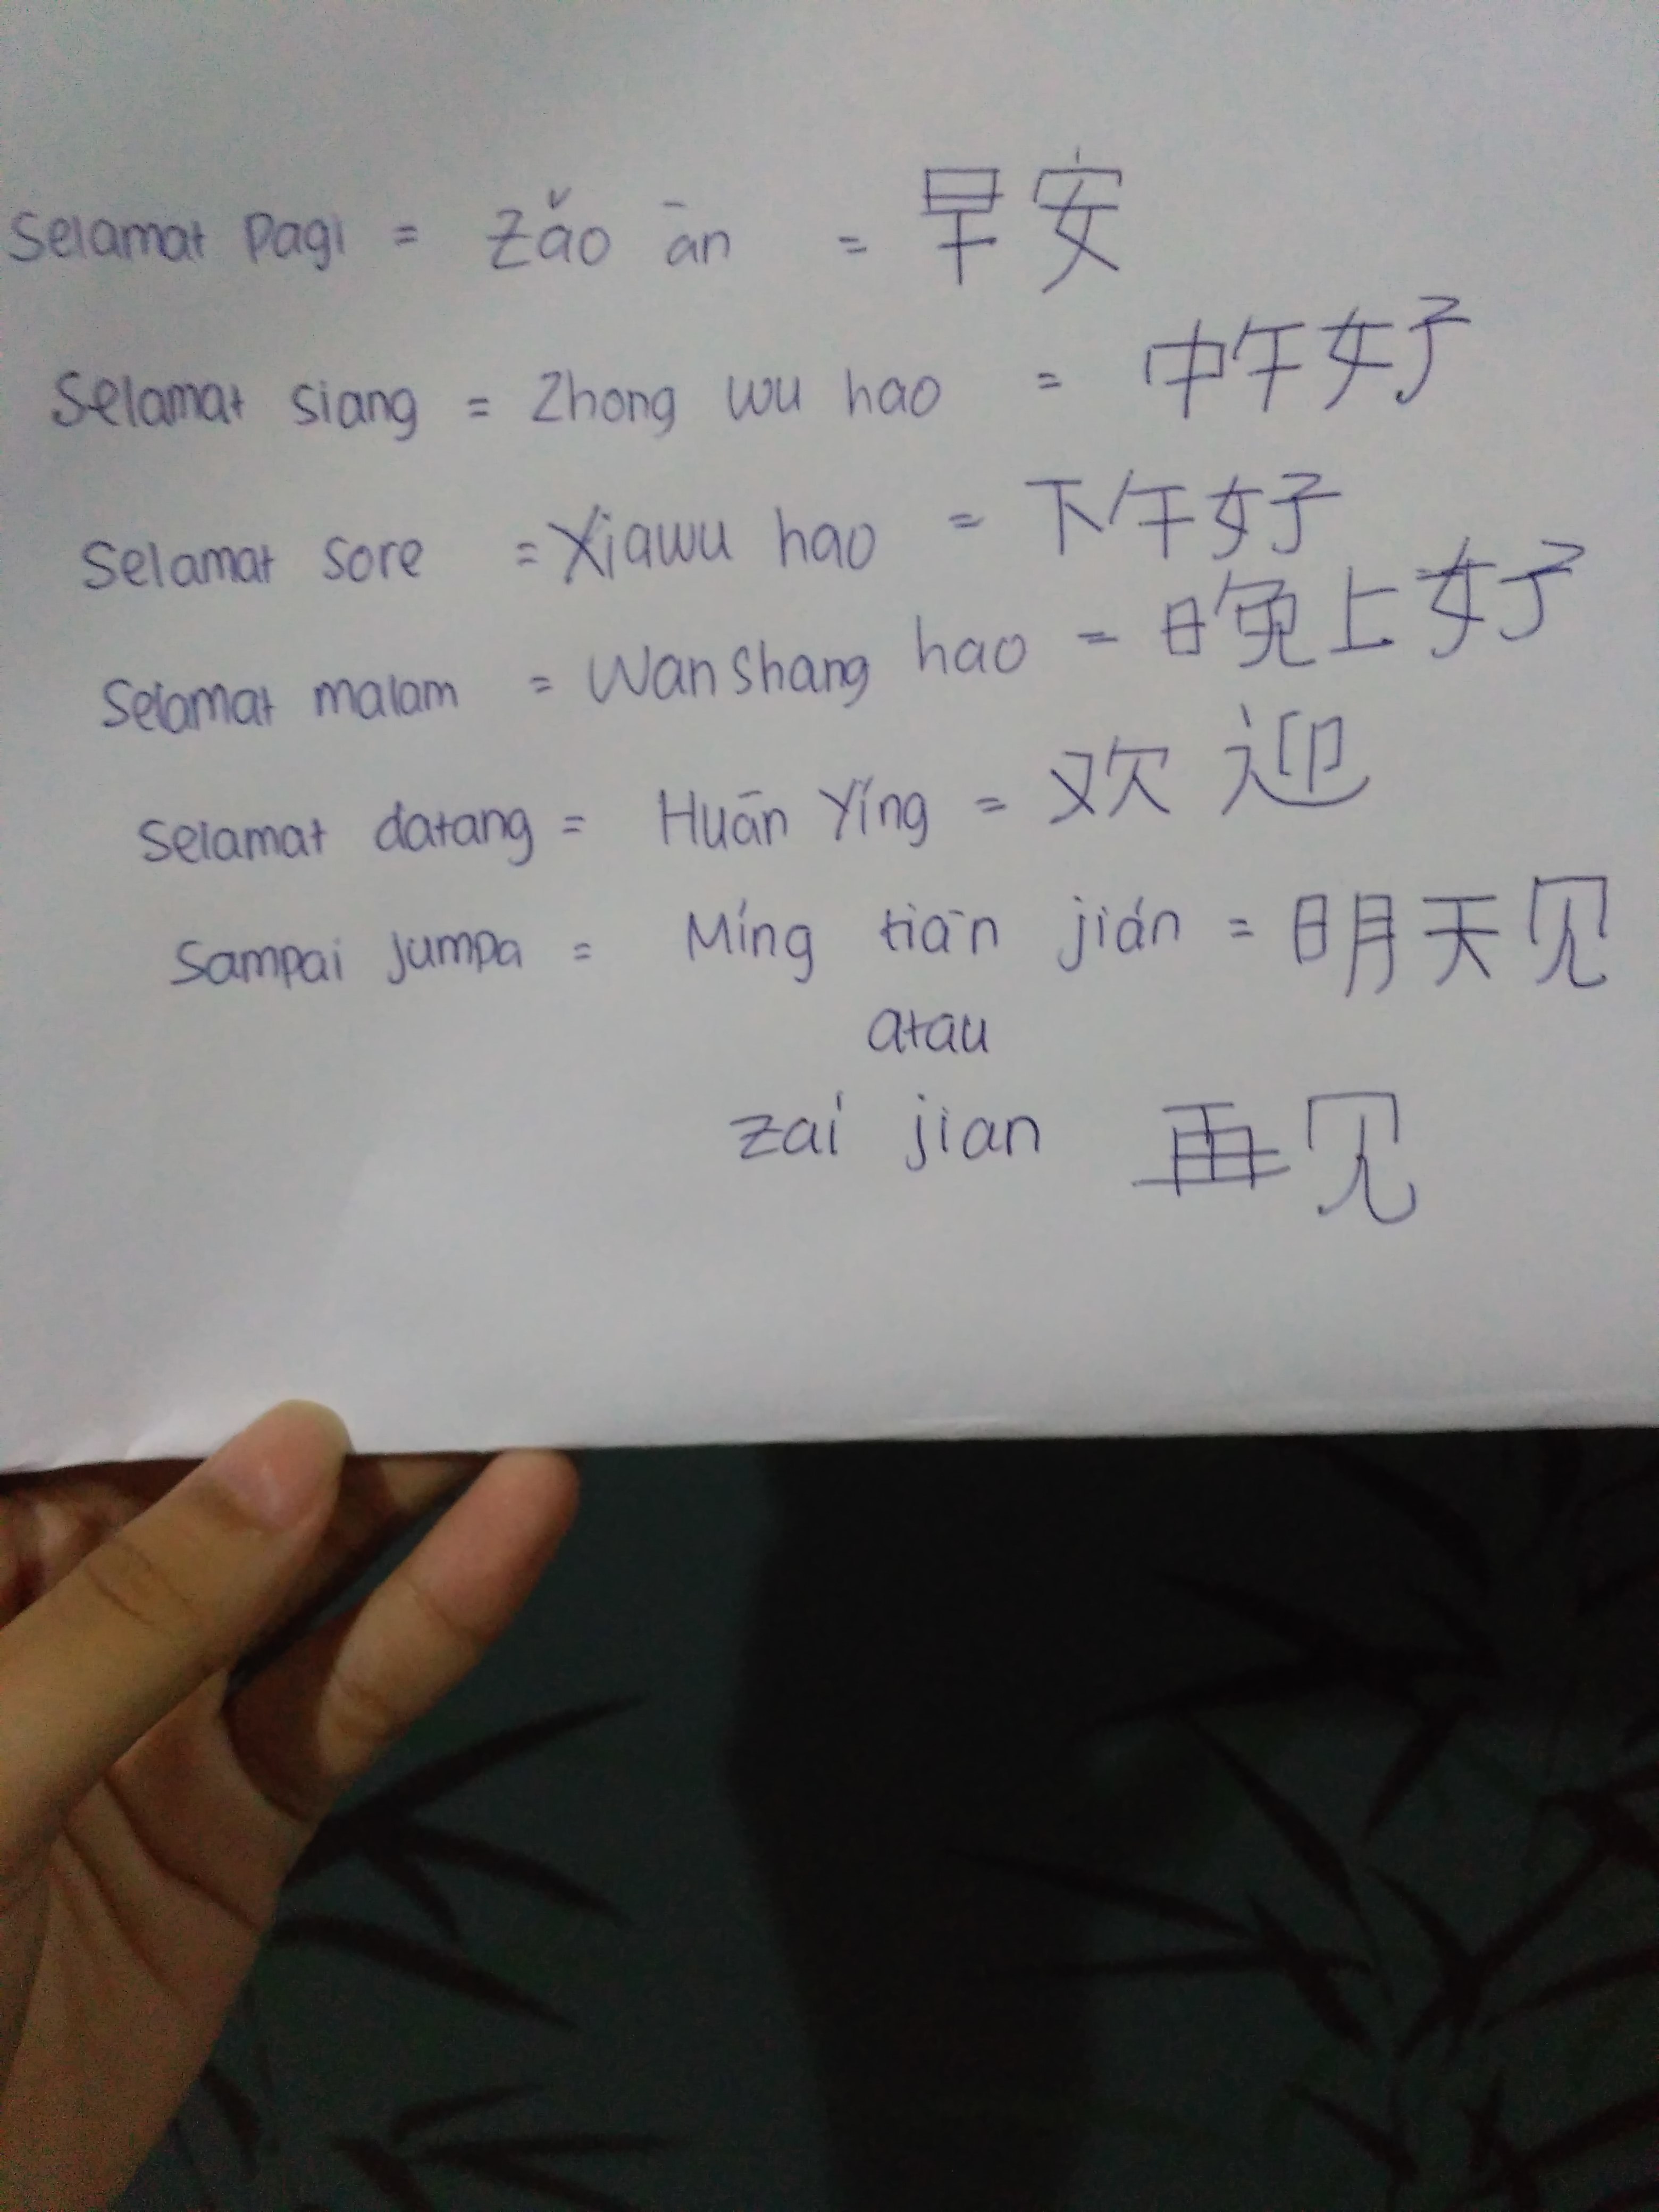 Selamat Pagi = Zǎo ān = 早安
Selamat siang = Zhong wu hao = 中午好
Selamat sore = Xiawu hao = 下午好
Selamat malam = Wanshang hao = 晚上好
Selamat datang = Huān Yíng = 欢迎
Sampai jumpa = Míng tiān jián = 明天见
atau
zai jian 再见